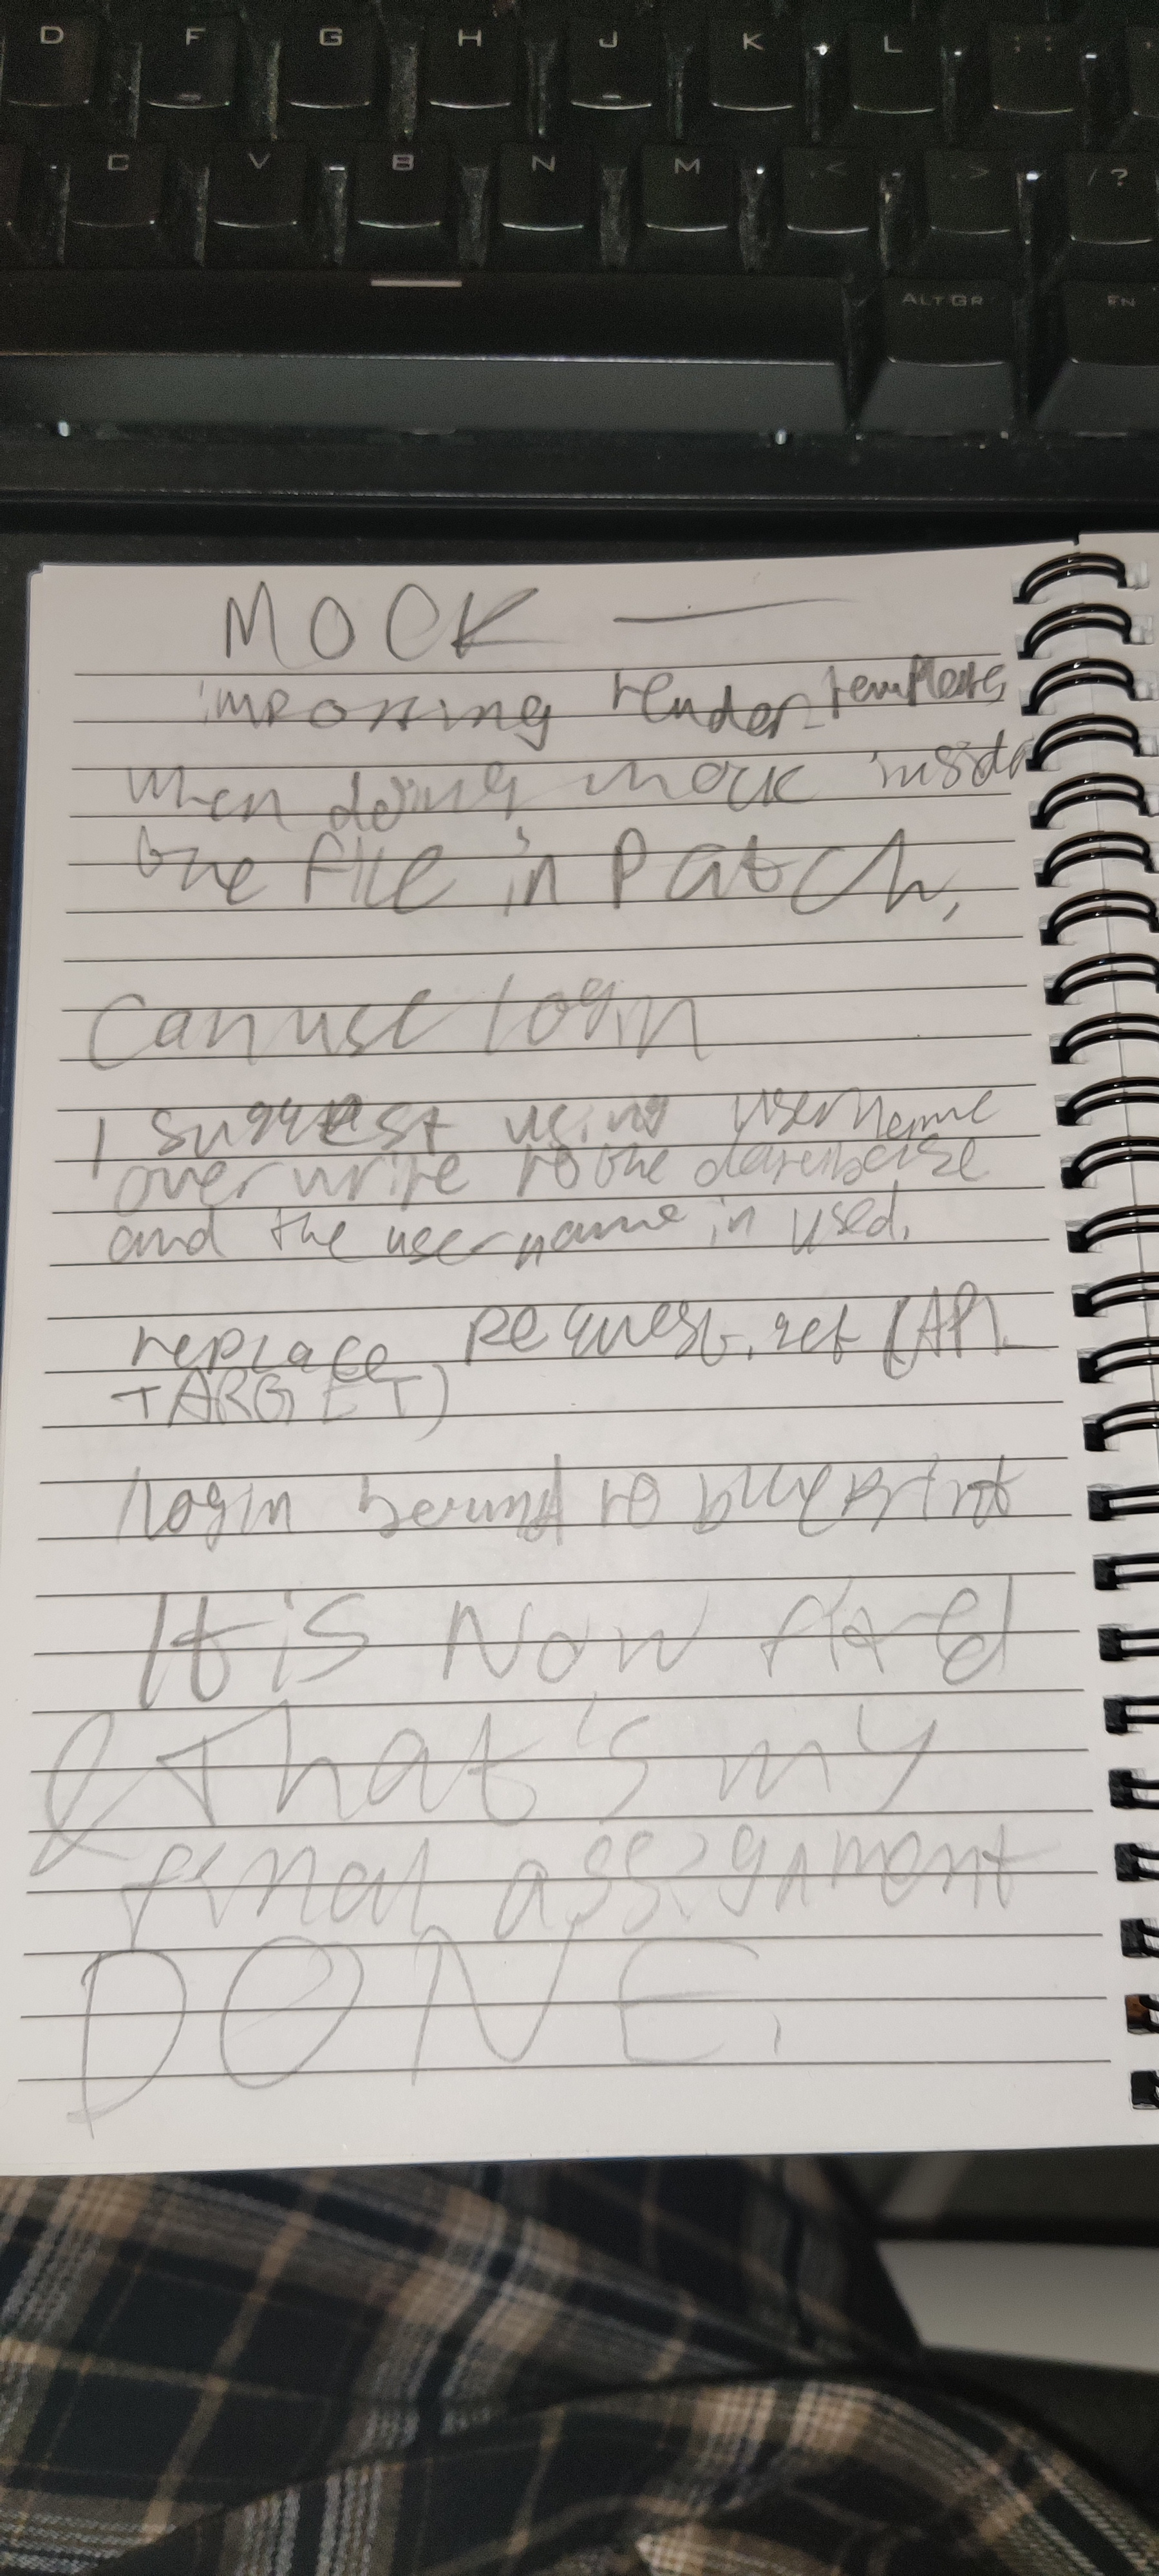 D F G H J K L
C V B N M < > / ?
ALT GR FN
MOCK —
importing render_template
when doing mock inside
the file in Patch,
Can use login
I suggest using username
over write to the database
and the username in used.
replace request.get (API_
TARGET)
login bound to blueprint
It is Now fixed
& That's my
final assignment
DONE.